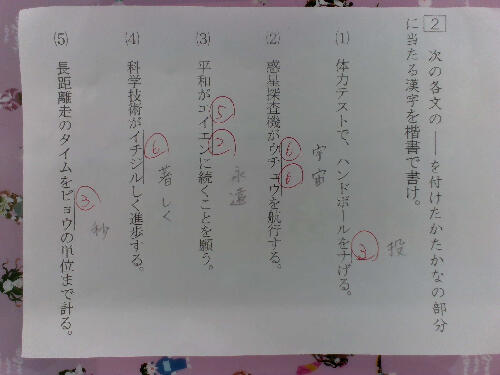 2 次の各文の――を付けたかたかなの部分
に当たる漢字を楷書で書け。
(1) 体力テストで、ハンドボールをナげる。
③
投
(2) 惑星探査機がウチュウを航行する。
⑥
⑥
宇宙
(3) 平和がエイエンに続くことを願う。
⑤
②
永遠
(4) 科学技術がイチジルしく進歩する。
⑥
著しく
(5) 長距離走のタイムをビョウの単位まで計る。
③
秒